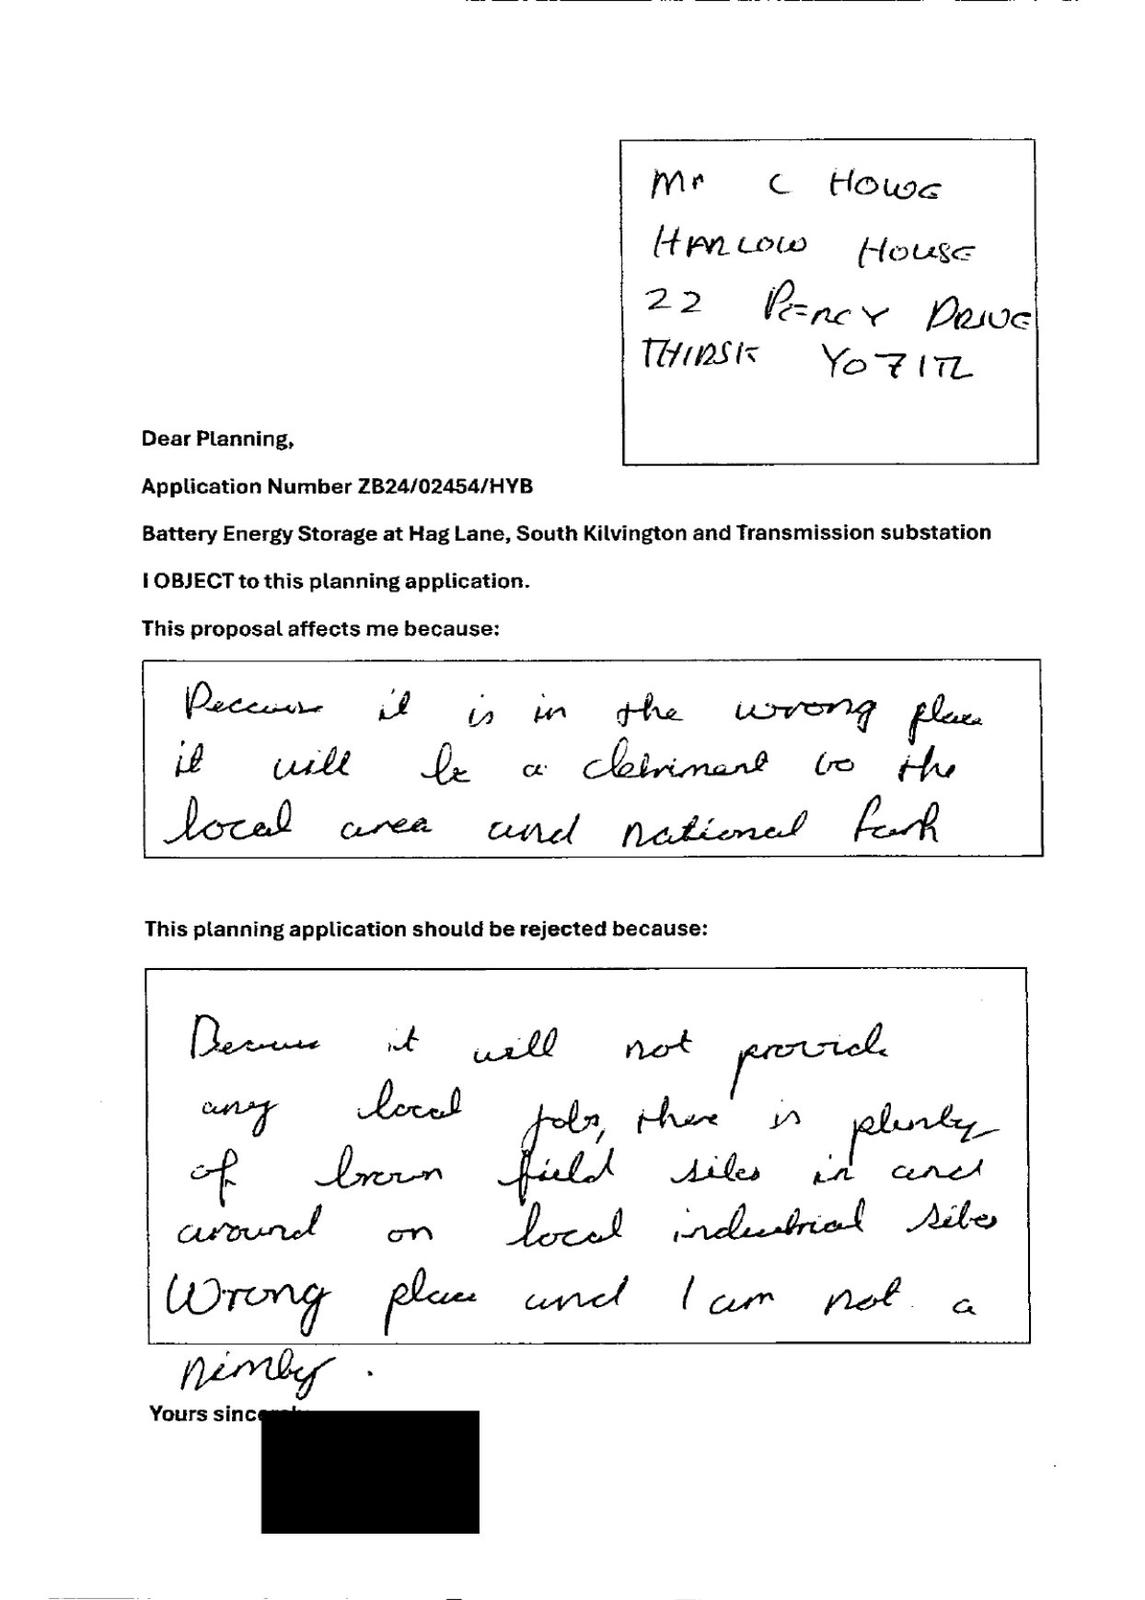 Mr C HOWE
HARLOW HOUSE
22 PERCY DRIVE
THIRSK YO7 1TL
Dear Planning,
Application Number ZB24/02454/HYB
Battery Energy Storage at Hag Lane, South Kilvington and Transmission substation
I OBJECT to this planning application.
This proposal affects me because:
Because it is in the wrong place
it will be a detriment to the
local area and national Park
This planning application should be rejected because:
Because it will not provide
any local jobs, there is plenty
of brown field sites in and
around on local industrial sites
Wrong place and I am not a
nimby.
Yours sincerely